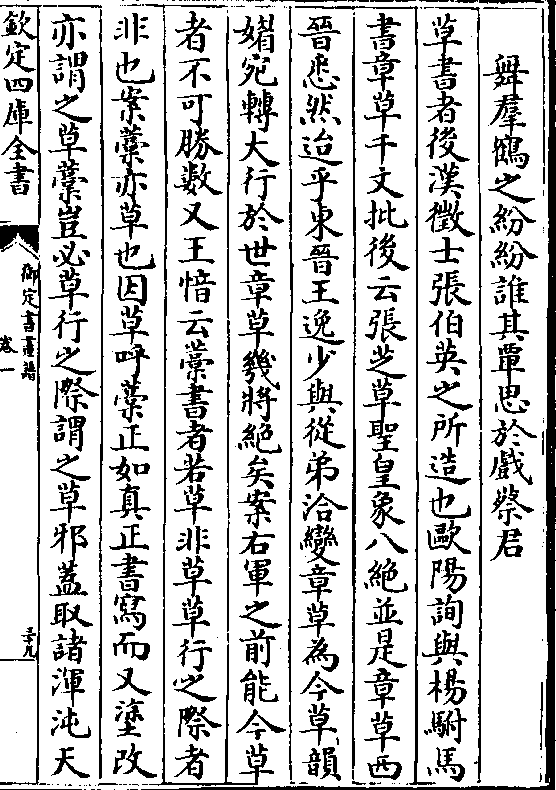 舞羣鶴之紛紛誰其覃思於戲蔡君
草書者後漢徵士張伯英之所造也歐陽詢與楊駙馬
書章草千文批後云張芝草聖皇象八絶並是章草西
晉悉然迨乎東晉王逸少與從弟洽變章草為今草韻
媚宛轉大行於世章草幾將絶矣案右軍之前能今草
者不可勝數又王愔云藁書者若草非草草行之際者
非也案藁亦草也因草呼藁正如真正書寫而又塗改
亦謂之草藁豈必草行之際謂之草邪蓋取諸渾沌天
欽定四庫全書
御定書畫譜
卷一
三十九